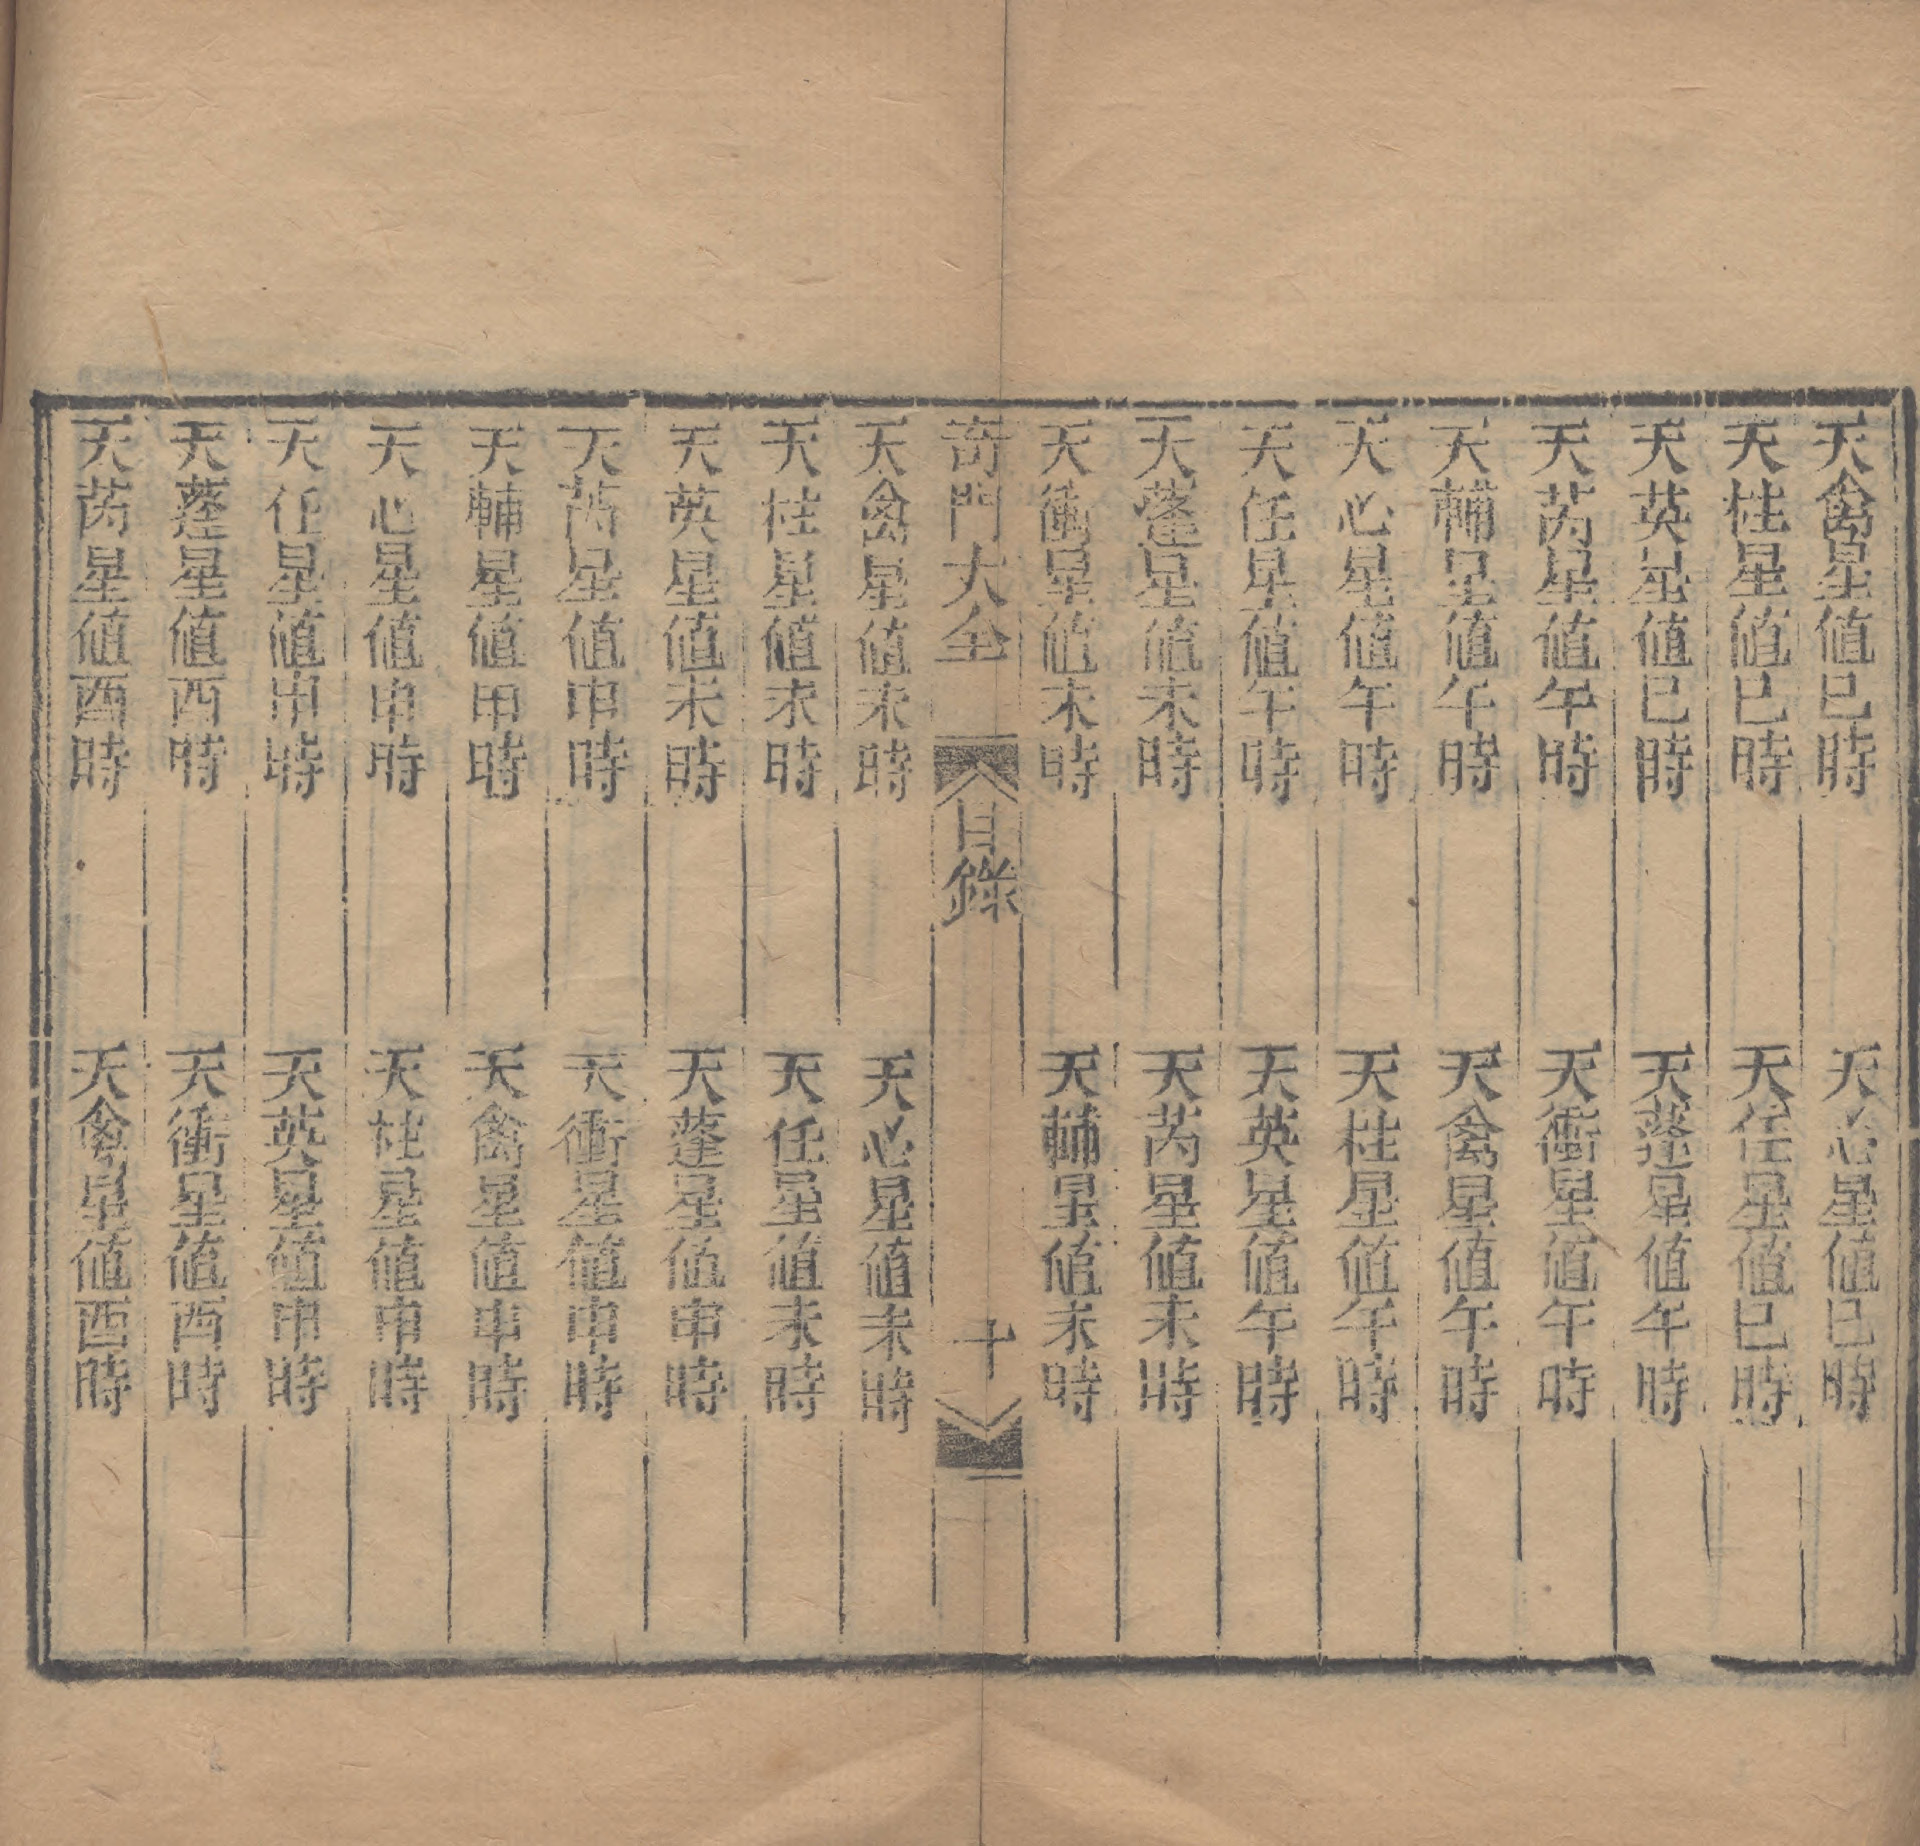 天禽星值巳時　天心星值巳時
天柱星值巳時　天任星值巳時
天英星值巳時　天蓬星值午時
天芮星值午時　天衝星值午時
天輔星值午時　天禽星值午時
天心星值午時　天柱星值午時
天任星值午時　天英星值午時
天蓬星值未時　天芮星值未時
天衝星值未時　天輔星值未時
奇門大全　目錄　十
天禽星值未時　天心星值未時
天柱星值未時　天任星值未時
天英星值未時　天蓬星值申時
天芮星值申時　天衝星值申時
天輔星值申時　天禽星值申時
天心星值申時　天柱星值申時
天任星值申時　天英星值申時
天蓬星值酉時　天衝星值酉時
天芮星值酉時　天禽星值酉時